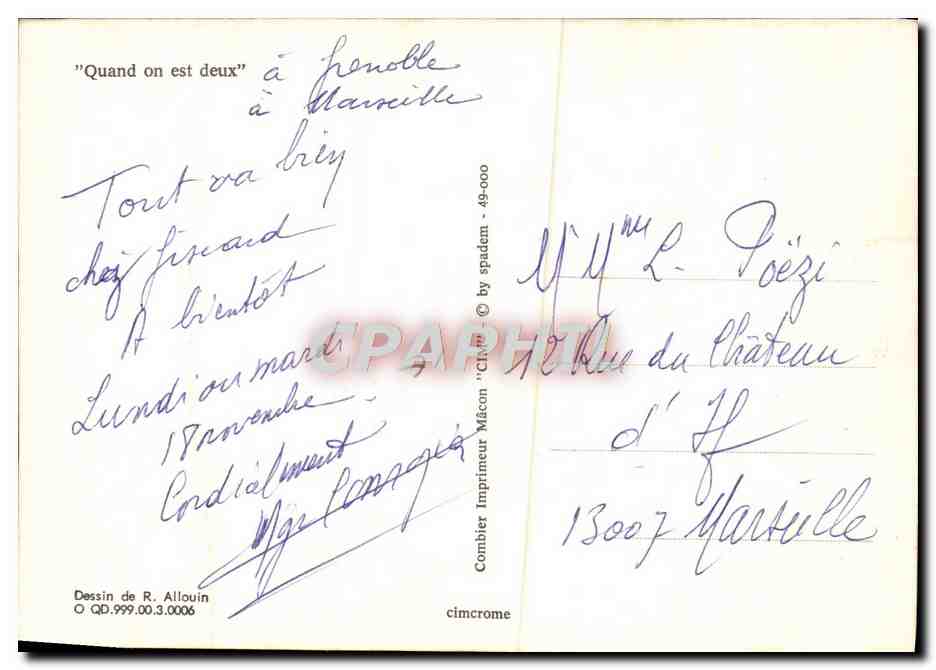 "Quand on est deux" à Grenoble
à Marseille
Tout va bien
chez Giscard
A bientôt
Lundi ou mardi
18 novembre
Cordialement
Dessin de R. Allouin
O QD.999.00.3.0006
Combier Imprimeur Mâcon "CIM" © by spadem - 49-000
cimcrome
CPAPHIL
M Mme L. Poëzi
12 Rue du Château
d'If
13007 Marseille